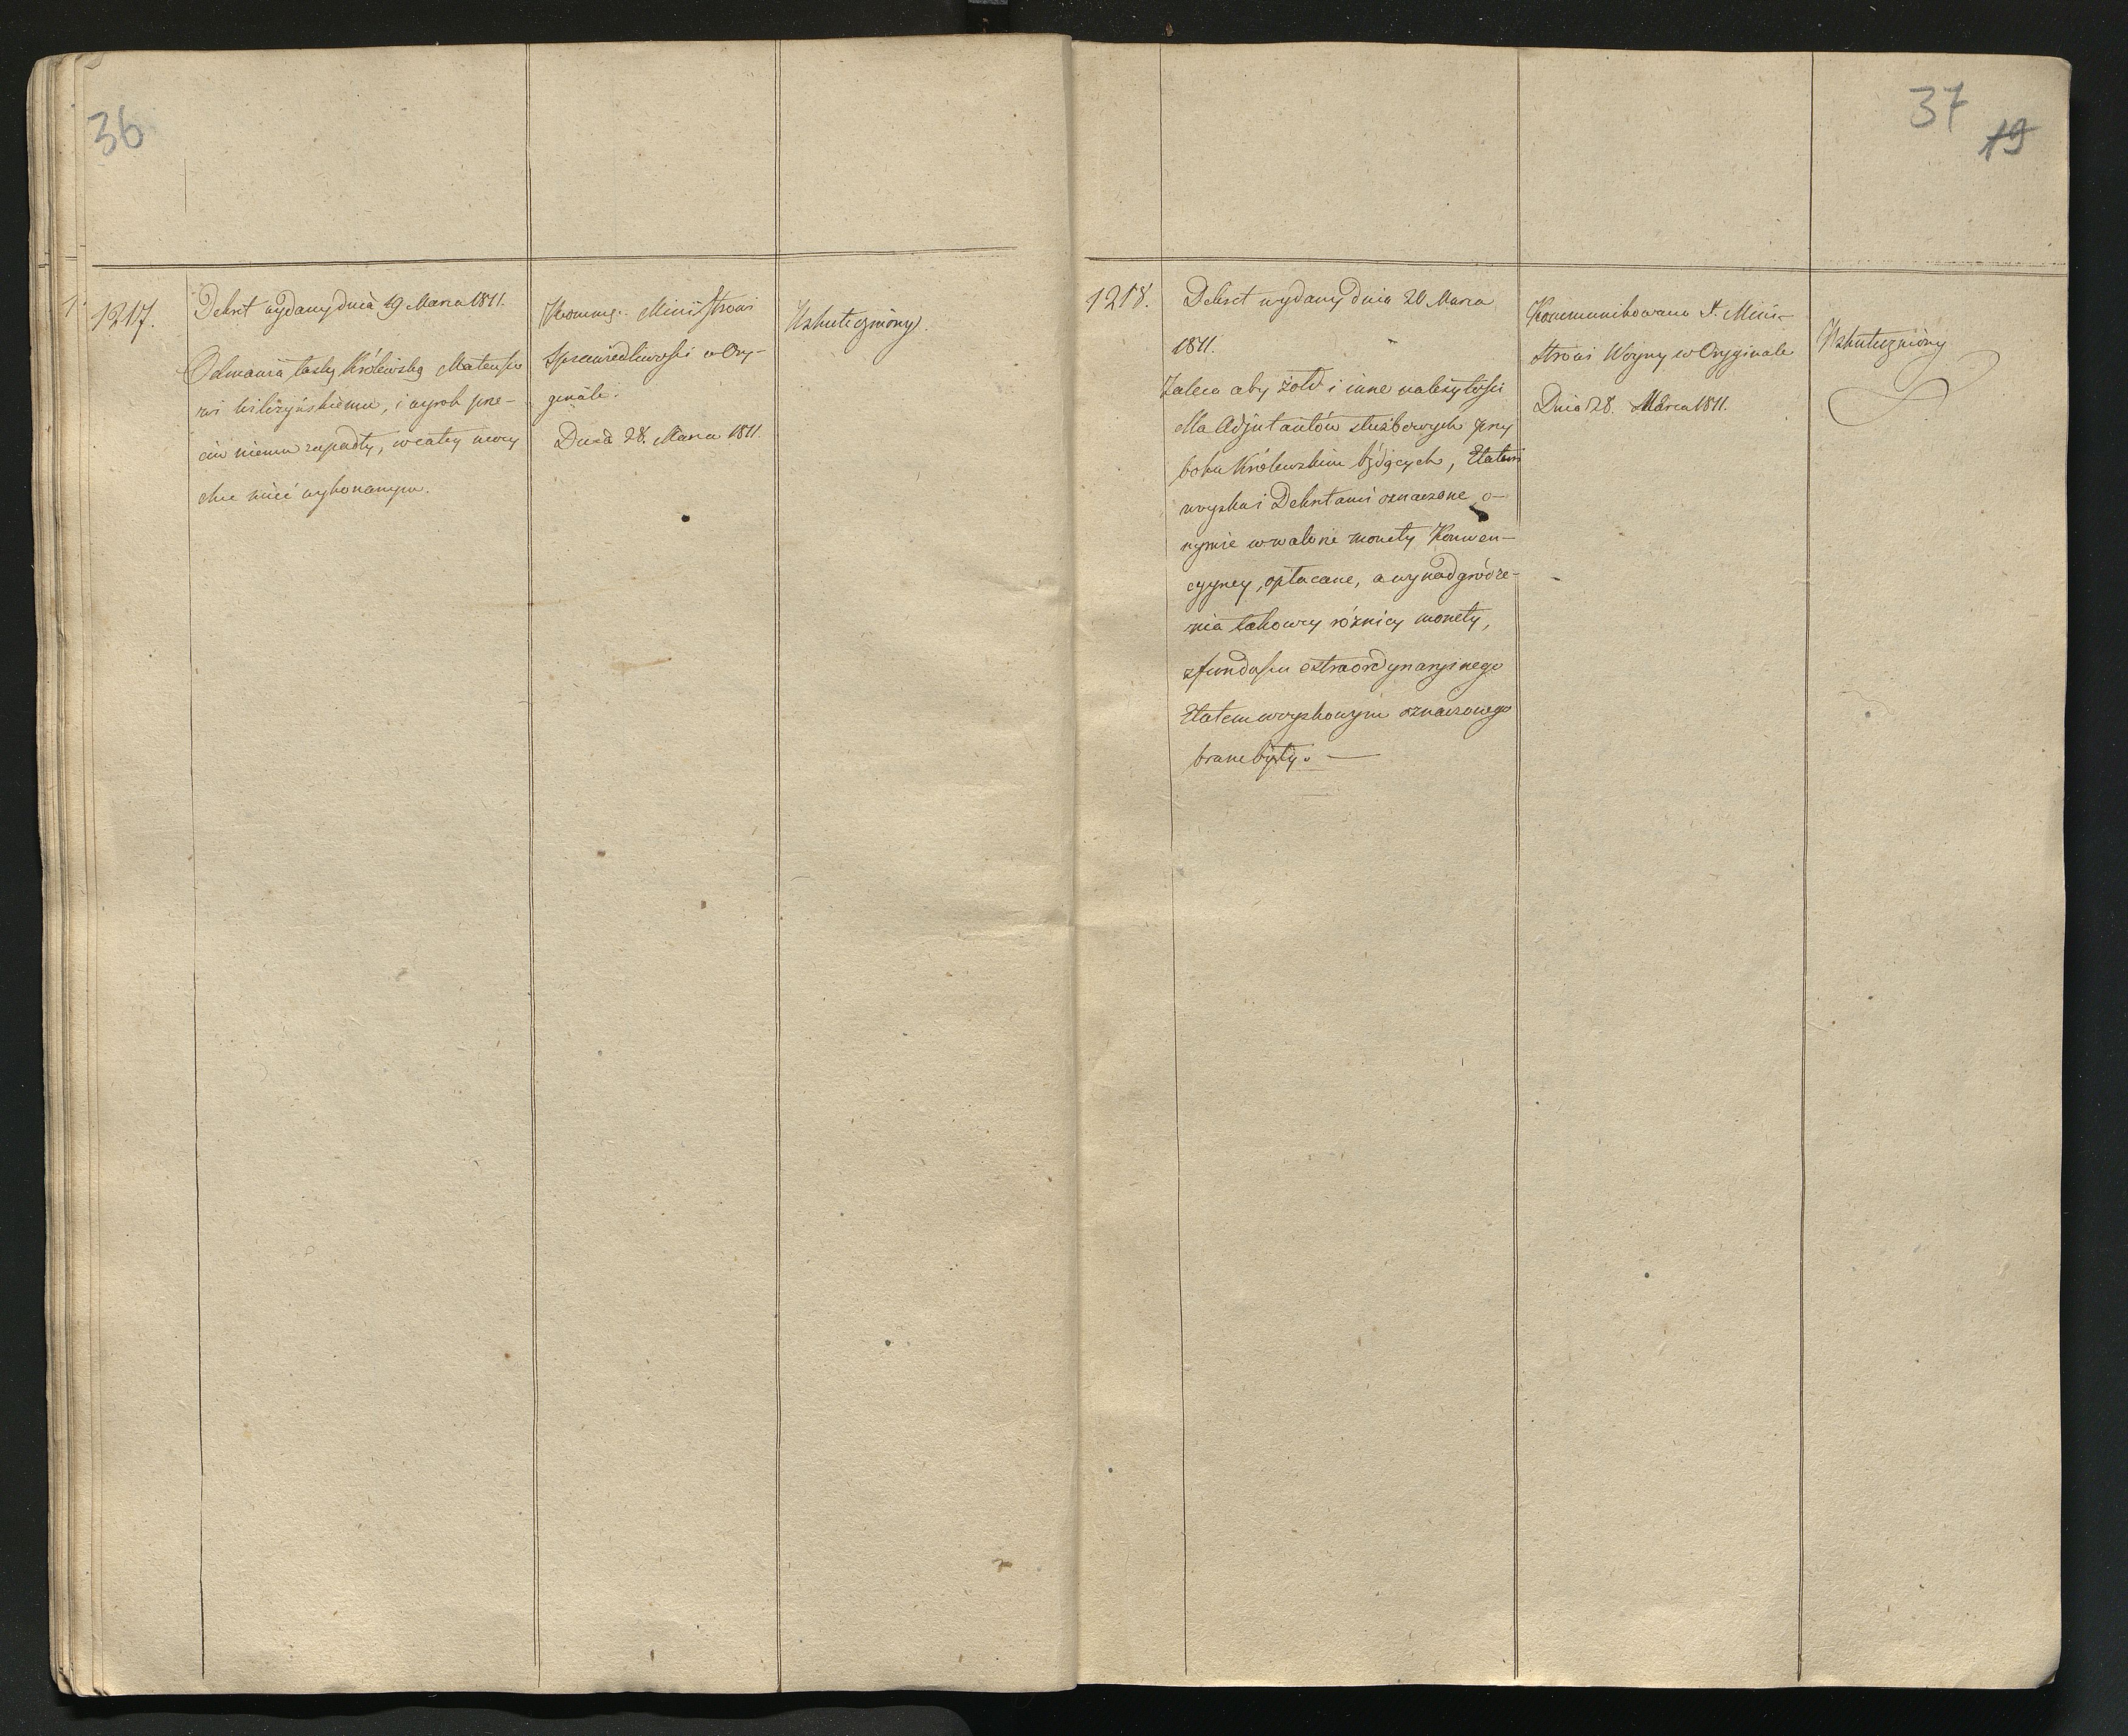 36
1217.
Dekret wydany dnia 19 Marca 1811.
Odmawia łaskę Królewską Mateuszo
wi i wyrok prze-
ciw niemu zapadły, w całey mocy
chce mieć wykonanym.
Kommu: Ministrowi
Sprawiedliwości w Ory-
ginale.
Dnia 28. Marca 1811.
Uskuteczniony.
37
19
1218.
Dekret wydany dnia 20 Marca
1811.
Zaleca aby żołd i inne należytości
dla Adjutantów służbowych przy
boku Królewskim będących, Etatem
woyska i Dekretami oznaczone o-
nymże w walorze monety Konwen-
cyyney, opłacane, a wynadgródze-
nia takowey różnicy monety,
z funduszu extraordynaryinego
Etatem woyskowym oznaczonego
brane były. —
Kommunikowano J. Mini-
strowi Woyny w Oryginale
Dnia 28. Marca 1811.
Uskuteczniony